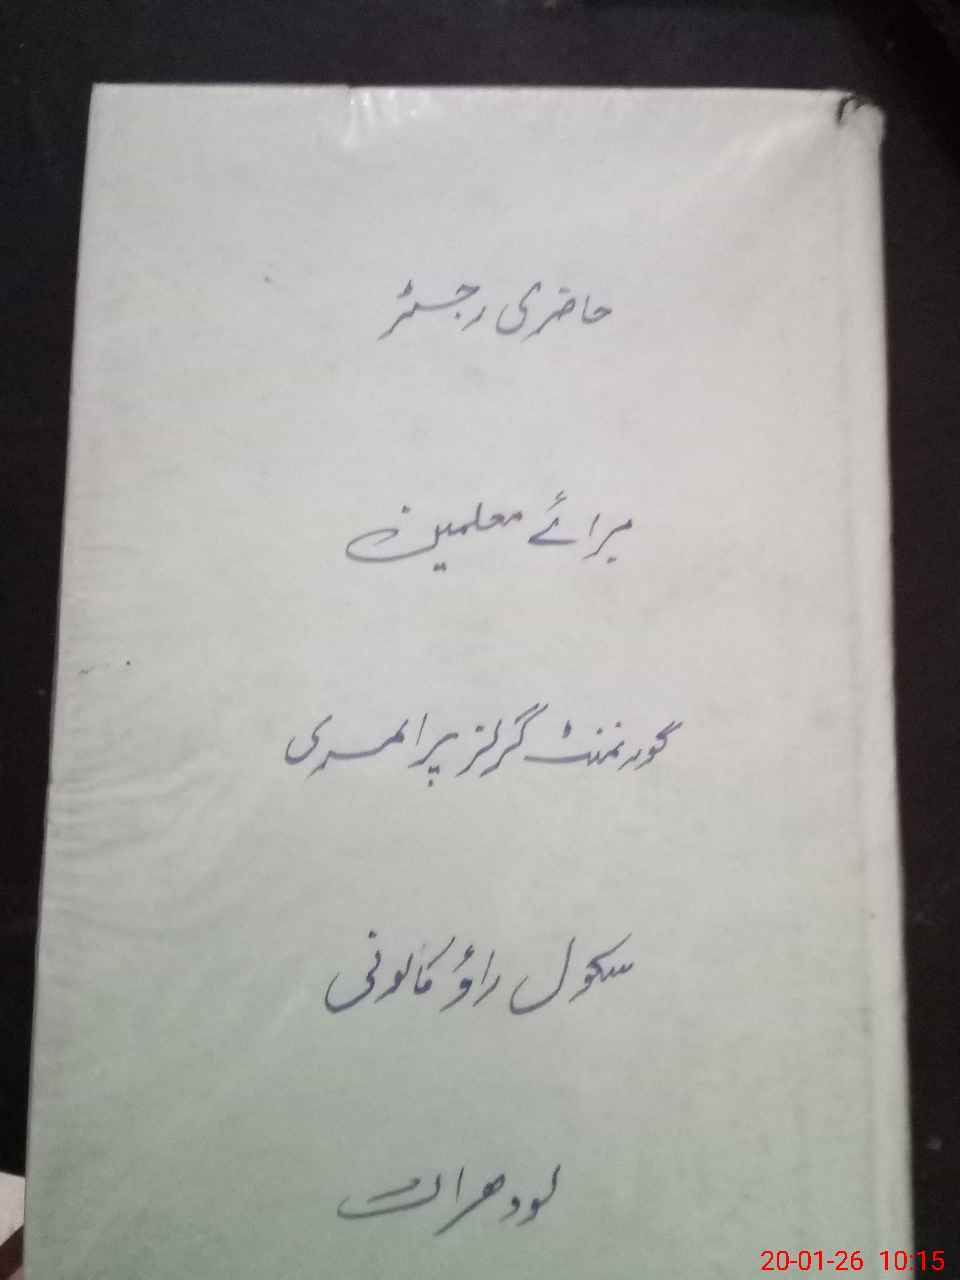 حاضری رجسٹر
برائے معلمین
گورنمنٹ گرلز پرائمری
سکول راؤ کالونی
لودھراں
20-01-26 10:15